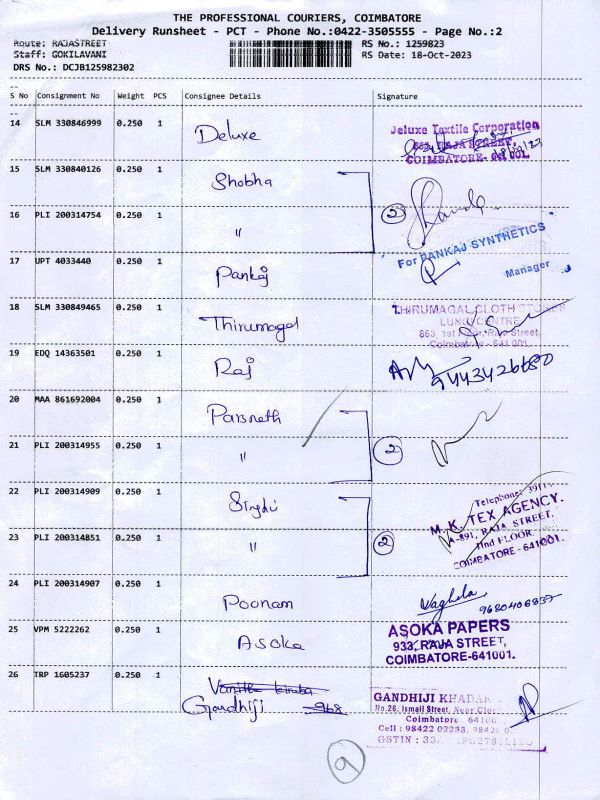 THE PROFESSIONAL COURIERS, COIMBATORE
Delivery Runsheet - PCT - Phone No.:0422-3505555 - Page No.:2
Route: RAJASTREET RS No.: 1259823
Staff: GOKILAVANI RS Date: 18-Oct-2023
DRS No.: DCJB125982302
S No Consignment No Weight PCS Consignee Details Signature
14 SLM 330846999 0.250 1 Deluxe
Jeluxe Textile Corporation
RAJA STREET,
COIMBATORE- 641 001.
15 SLM 330840126 0.250 1 Shobha
16 PLI 200314754 0.250 1 " 2
For PANKAJ SYNTHETICS
Manager
17 UPT 4033440 0.250 1 Pankaj
18 SLM 330849465 0.250 1 Thirumagal
THIRUMAGAL CLOTH STORES
LUNGI CENTRE
863, 1st Floor, Raja Street,
Coimbatore - 641 001.
19 EDQ 14363501 0.250 1 Raj
9443426680
20 MAA 861692004 0.250 1 Parsneth
21 PLI 200314955 0.250 1 " 2
22 PLI 200314909 0.250 1 Singhi
Telephone:
M.K. TEX AGENCY.
A-891, RAJA STREET,
IInd FLOOR,
COIMBATORE - 641001.
23 PLI 200314851 0.250 1 " 2
24 PLI 200314907 0.250 1 Poonam
Vaghela
9680406837
25 VPM 5222262 0.250 1 Asoka
ASOKA PAPERS
933, RAJA STREET,
COIMBATORE-641001.
26 TRP 1605237 0.250 1
Gandhiji 968
GANDHIJI KHADAR
No.26, Ismail Street, Near
Coimbatore
Cell : 98422 02233, 98422
GSTIN :
9